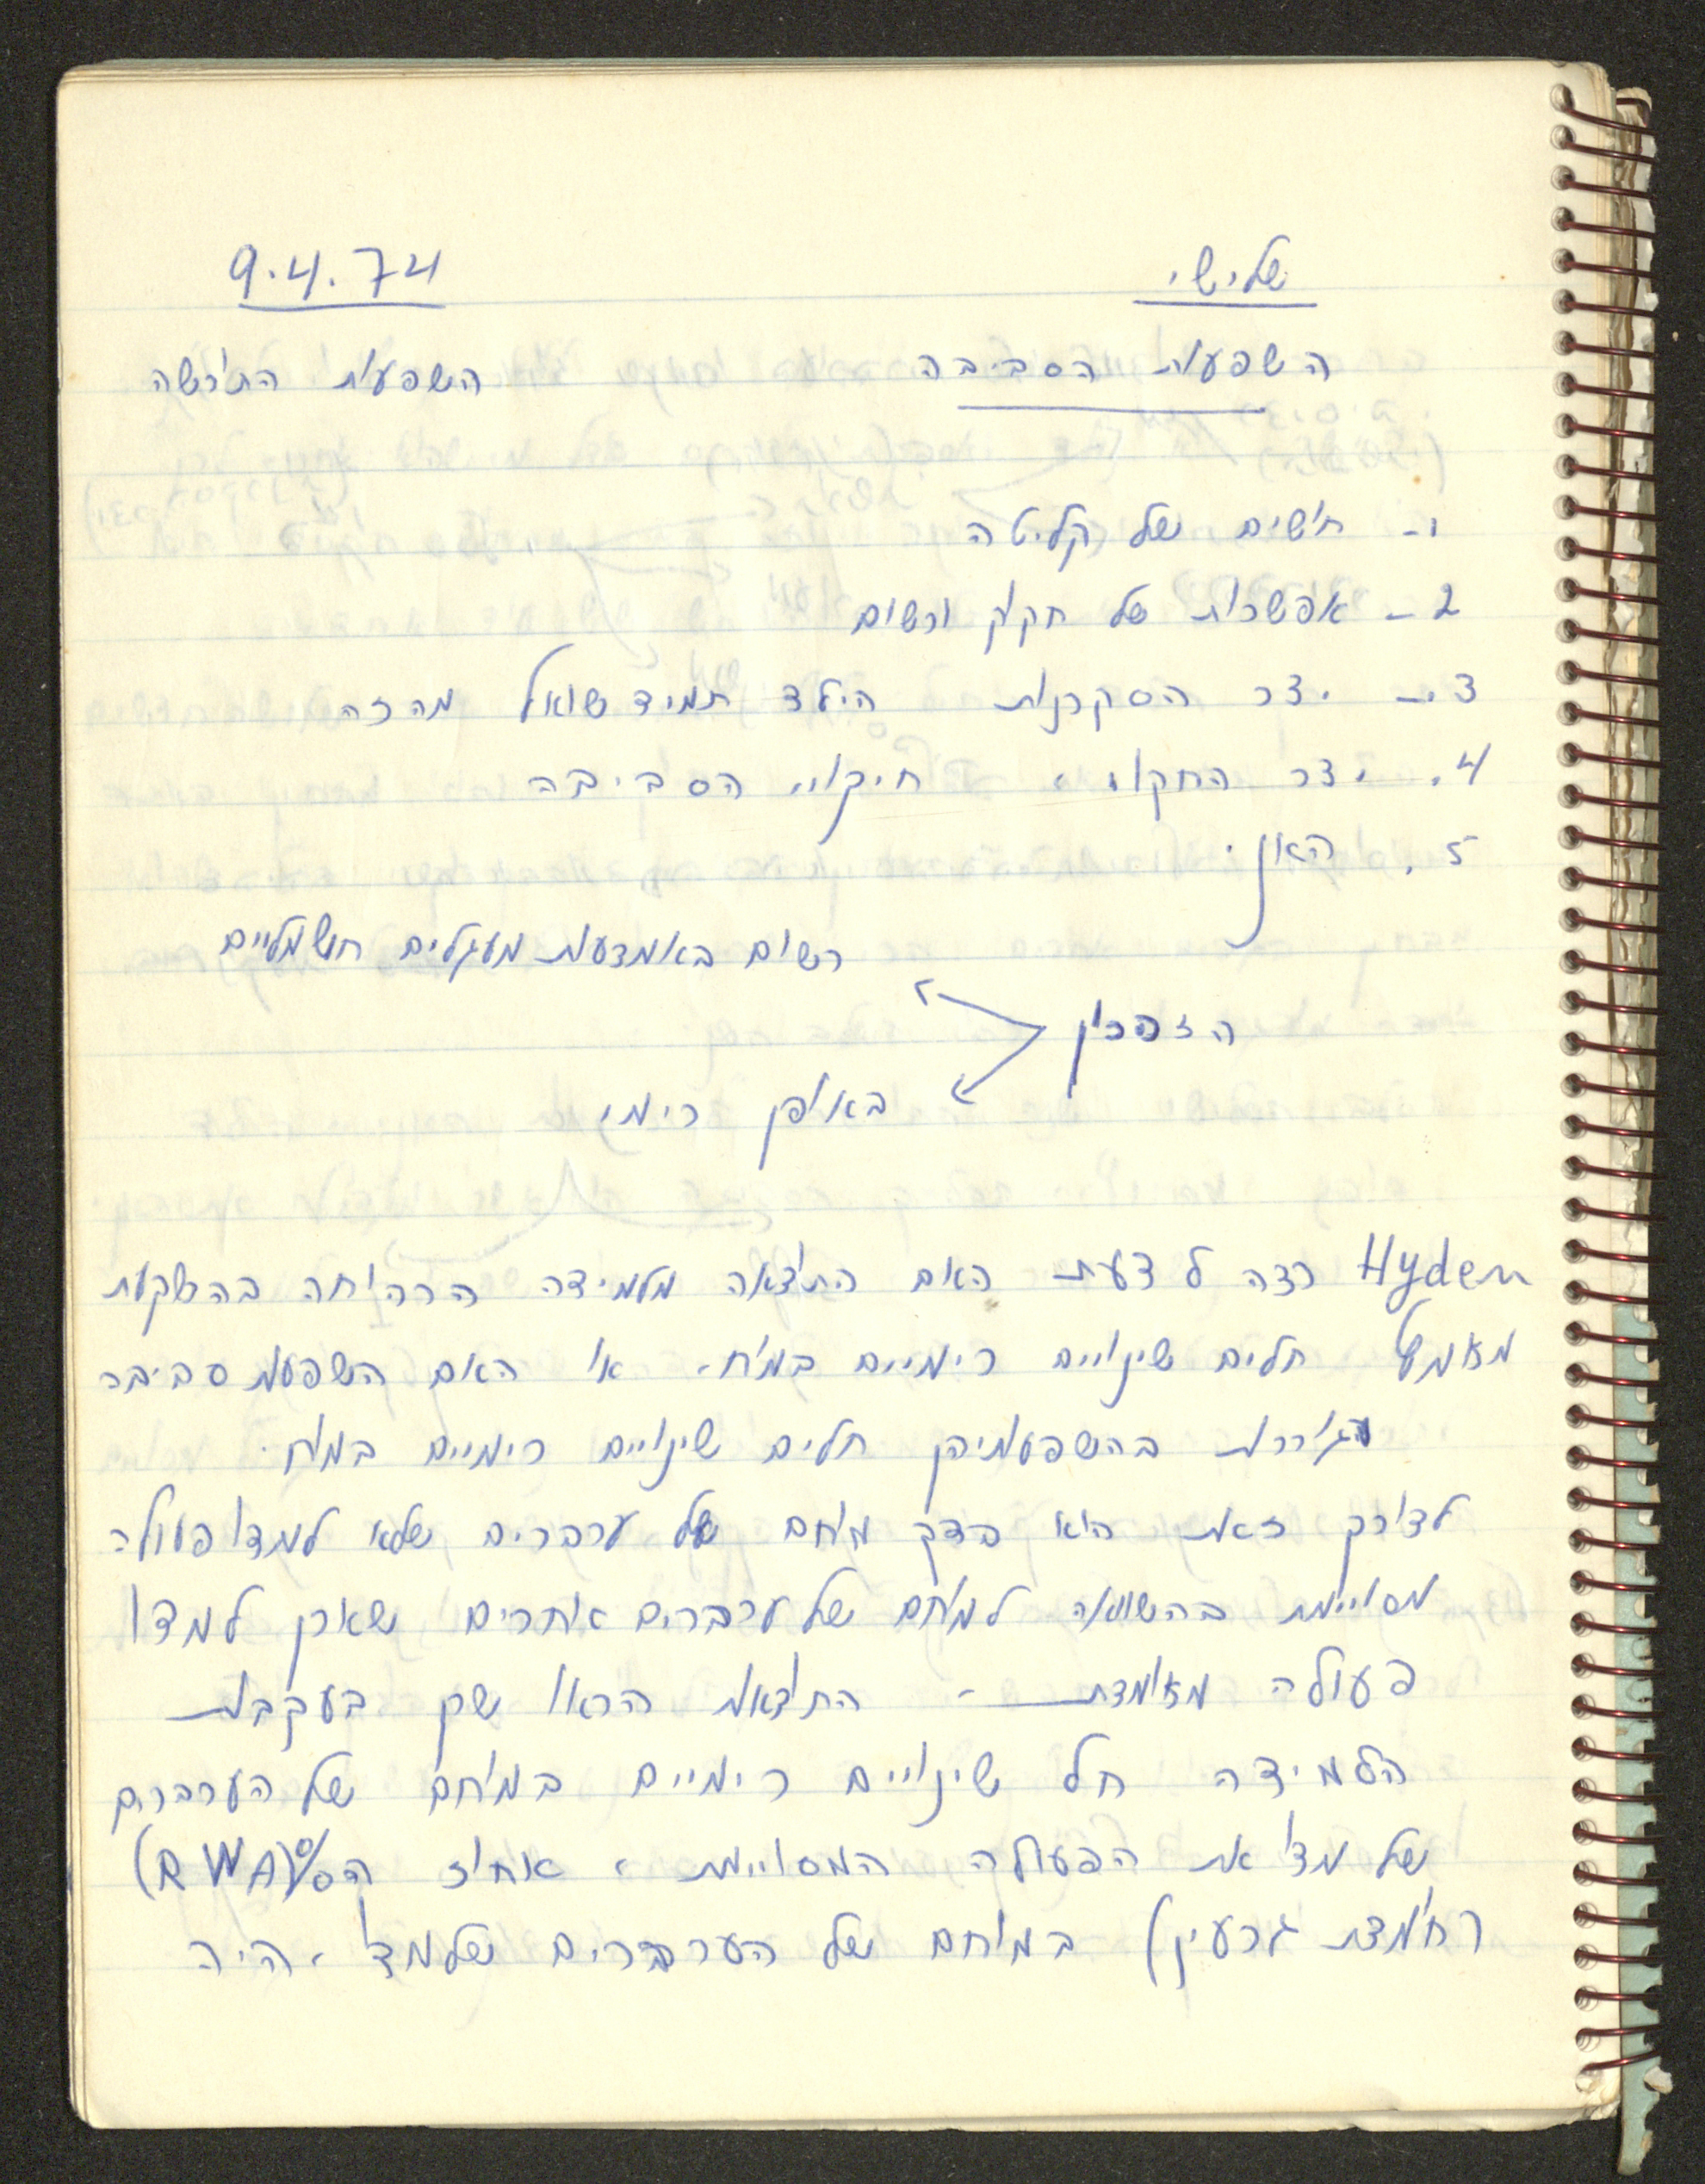 שלישי 9.4.74
השפעות הסביבה השפעות התורשה
1- חושים של קליטה
2 - אפשרות של חקוק ורשום
3 - יצר הסקרנות הילד תמיד שואל מה זה
4. יצר החקוי, חיקוי הסביבה
5. האון.
רשום באמצעות מעגלים חשמליים
הזכרון
באופן כימי
Hyden רצה לדעת האם התוצאה מלמידה הרהוחה בהשקעת
מאמץ חלים שינויים כימיים במוח. או האם השפעות סביבה
גוררות בהשפעותיהן חלים שינויים כימיים במוח.
לצורך זאת הוא בדק מוחם של עכברים שלא למדו פעולה
מסויימת בהשוואה למוחם של עכברים אחרים שארן למדו
פעולה מאומדת - התוצאות הראו שכן בעקבות
הלמידה חל שינויים כימיים במוחם של העכברים
שלמדו את הפעולה המסויימת, אחוז
(חומצת גרעין) במוחם של העכברים שלמדו, היה